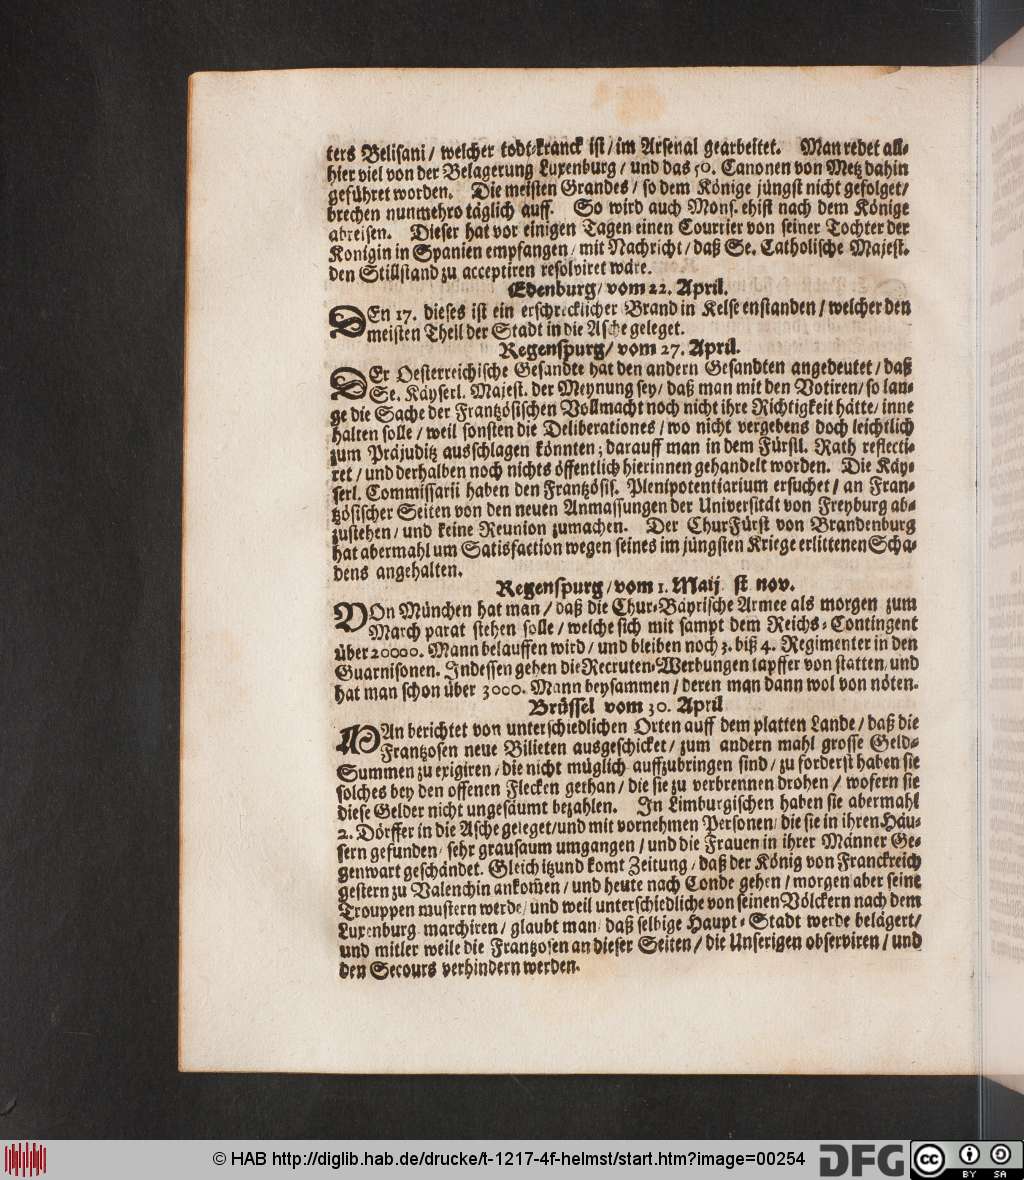 ters Belisani / welcher todt-kranck ist / im Arsenal gearbeitet. Man redet all-
hier viel von der Belagerung Luxenburg / und das 50. Canonen von Metz dahin
geführet worden. Die meisten Grandes / so dem Könige jüngst nicht gefolget /
brechen nunmehro täglich auff. So wird auch Mons. ehist nach dem Könige
abreisen. Dieser hat vor einigen Tagen einen Courrier von seiner Tochter der
Königin in Spanien empfangen / mit Nachricht / daß Se. Catholische Majest.
den Stillstand zu acceptiren resolviret wäre.
Edenburg / vom 22. April.
DEn 17. dieses ist ein erschrecklicher Brand in Kelse enstanden / welcher den
meisten Theil der Stadt in die Asche geleget.
Regenspurg / vom 27. April.
DEr Oesterreichische Gesandte hat den andern Gesandten angedeutet / daß
Se. Käyserl. Majest. der Meynung sey / daß man mit den Votiren / so lan-
ge die Sache der Frantzösischen Vollmacht noch nicht ihre Richtigkeit hätte / inne
halten solle / weil sonsten die Deliberationes / wo nicht vergebens doch leichtlich
zum Präjuditz ausschlagen könnten ; darauff man in dem Fürstl. Rath reflecti-
ret / und derhalben noch nichts öffentlich hierinnen gehandelt worden. Die Käy-
serl. Commissarii haben den Frantzösis. Plenipotentiarium ersuchet / an Fran-
tzösischer Seiten von den neuen Anmassungen der Universität von Freyburg ab-
zustehen / und keine Reunion zumachen. Der ChurFürst von Brandenburg
hat abermahl um Satisfaction wegen seines im jüngsten Kriege erlittenen Scha-
dens angehalten.
Regenspurg / vom 1. Maij st nov.
VOn München hat man / daß die Chur-Bäyrische Armee als morgen zum
March parat stehen solle / welche sich mit sampt dem Reichs-Contingent
über 20000. Mann belauffen wird / und bleiben noch 3. biß 4. Regimenter in den
Guarnisonen. Indessen gehen die Recruten-Werbungen tapffer von statten / und
hat man schon über 3000. Mann beysammen / deren man dann wol von nöten.
Brüssel vom 30. April
MAn berichtet von unterschiedlichen Orten auff dem platten Lande / daß die
Frantzosen neue Bilieten ausgeschicket / zum andern mahl grosse Geld-
Summen zu exigiren / die nicht müglich auffzubringen sind / zu forderst haben sie
solches bey den offenen Flecken gethan / die sie zu verbrennen drohen / wofern sie
diese Gelder nicht ungesäumt bezahlen. In Limburgischen haben sie abermahl
2. Dörffer in die Asche geleget / und mit vornehmen Personen / die sie in ihren Häu-
sern gefunden / sehr grausaum umgangen / und die Frauen in ihrer Männer Ge-
genwart geschändet. Gleich itzund komt Zeitung / daß der König von Franckreich
gestern zu Valenchin ankom̃en / und heute nach Conde gehen / morgen aber seine
Trouppen mustern werde / und weil unterschiedliche von seinen Völckern nach dem
Luxenburg. marchiren / glaubt man / daß selbige Haupt-Stadt werde belägert /
und mitler weile die Frantzosen an dieser Seiten / die Unserigen observiren / und
den Secours verhindern werden.
© HAB http://diglib.hab.de/drucke/t-1217-4f-helmst/start.htm?image=00254
DFG
cc BY SA